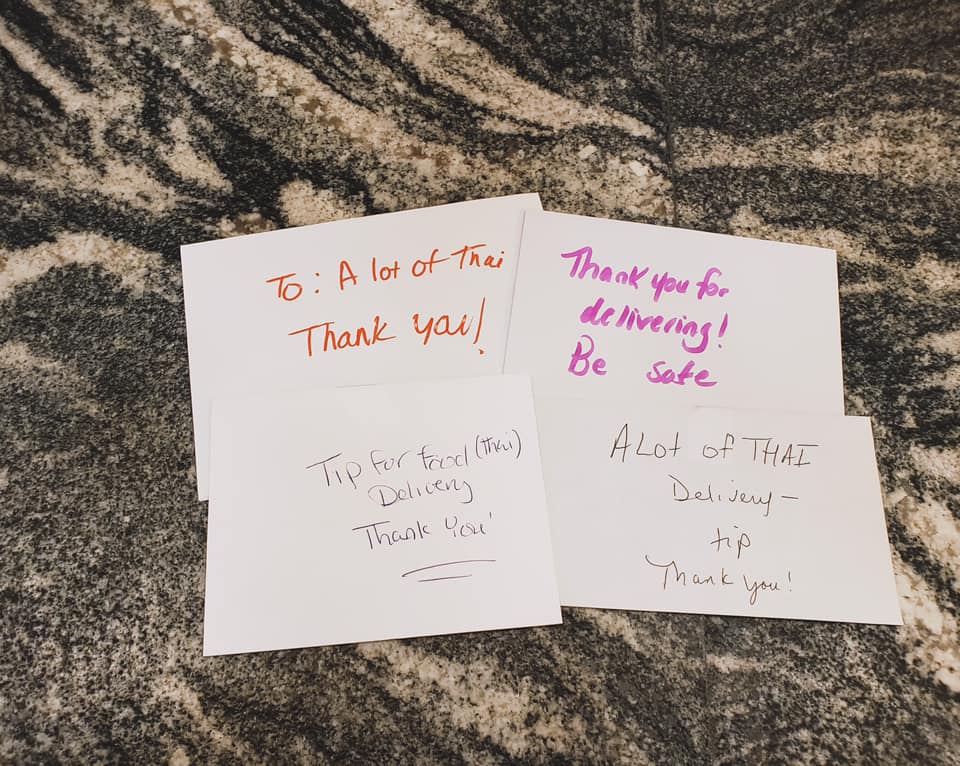 To: A lot of Thai
Thank you!
Thank you for
delivering!
Be safe
Tip for food (thai)
Delivery
Thank You!
A Lot of THAI
Delivery –
tip
Thank you!